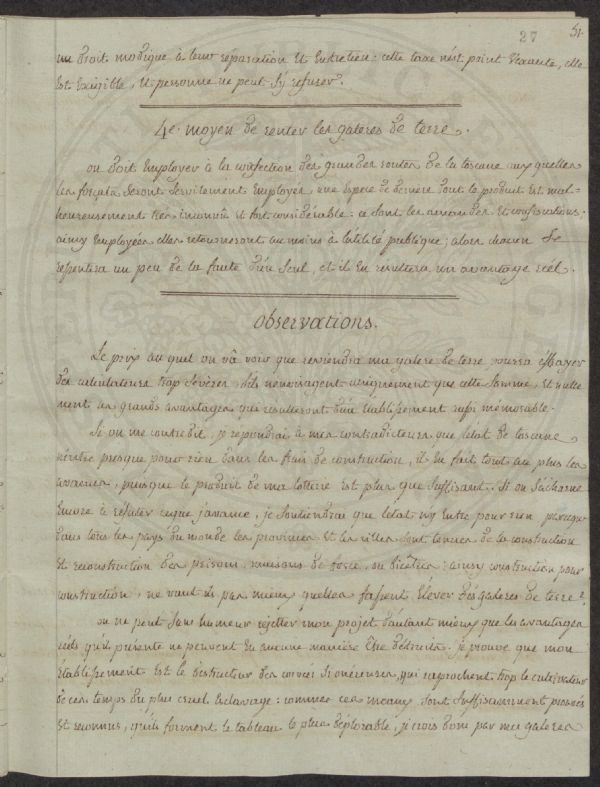 27 51.
un droit modique à leur réparation et entretien: cette taxe n'est point vexante, elle
est exigible, et personne ne peut s'y refuser.
4e. moyen de renter les galeres de terre.
on doit employer à la confection des grandes routes de la toscane auxquelles
les forçats seront servilement employés, une espece de deniers dont le produit est mal=
heureusement très inconnu et fort considérable: ce sont les amendes et confiscations;
ainsy employées elles retourneront au moins à l'utilité publique; alors chacun se
ressentira un peu de la faute d'un seul, et il en résultera un avantage réel.
observations.
Le prix au quel on va voir que reviendra ma galere de terre, pourra effrayer
des calculateurs trop séveres s'ils n'envisagent uniquement que cette somme, et nulle
ment les grands avantages qui resulteront d'un établissement aussi mémorable.
Si on me contredit, je répondrai à mes contradicteurs que l'état de toscane
n'entre presque pour rien dans les frais de construction, il en fait tout au plus les
avances, puisque le produit de ma lotterie est plus que suffisant. Si on s'acharne
encore à réfuter ce que j'avance, je soutiendrai que l'état n'y entre pour rien puisque
dans tous les pays du monde les provinces et les villes sont tenues de la construction
et reconstruction des prisons, maisons de force, ou bicêtres: ainsy construction pour
construction, ne vaut il pas mieux qu'elles fassent élever des galeres de terre?
on ne peut sans humeur rejetter mon projet d'autant mieux que les avantages
réels qu'il présente ne peuvent en aucune manière être détruits. je prouve que mon
établissement est le destructeur des corvées si onéreuses, qui raprochent trop le cultivateur
de ces temps du plus cruel esclavage: comme ces maux sont suffisamment prouvés
et reconnus, qu'ils forment le tableau le plus déplorable, je crois donc par mes galeres